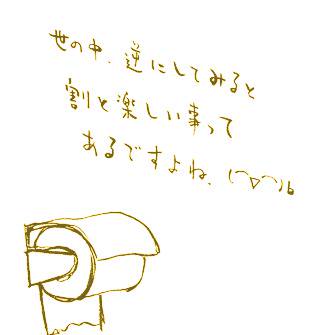 世の中、逆にしてみると
割と楽しい事って
あるですよね、(⌒▽⌒)b